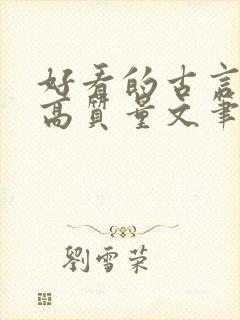 好看的古言
高质量文笔
劉雪荣